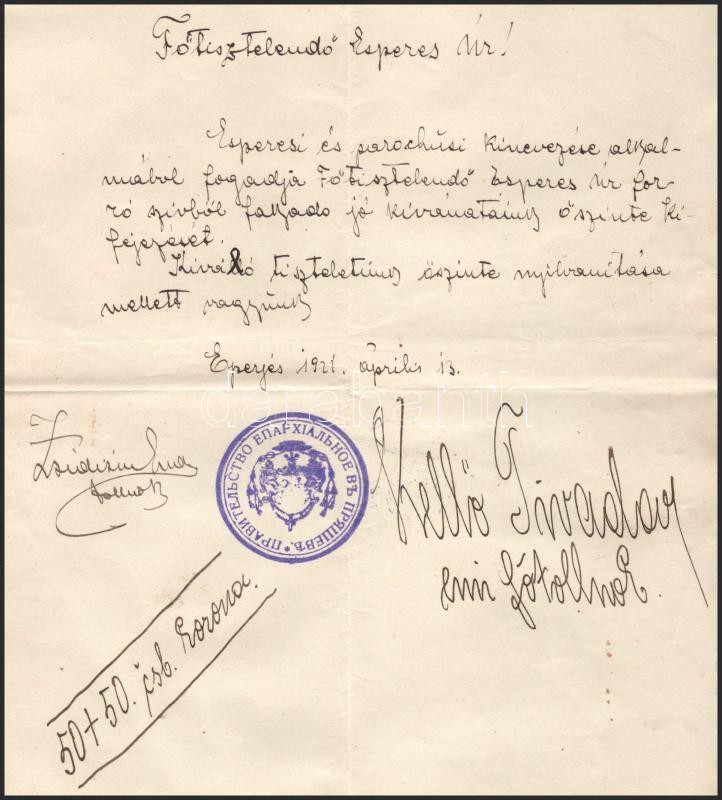 Főtisztelendő Esperes Úr!
Esperesi és parochusi kinevezése alkal-
mából fogadja Főtisztelendő Esperes Úr for-
ró szivből fakado jó kivánataink őszinte ki-
fejezését.
Kiváló tiszteletünk őszinte nyilvanitása
mellett vagyunk
Eperjés 1921. április 13.
darabanth
ПРАВИТЕЛЬСТВО ЕПАРХІАЛЬНОЕ ВЪ ПРЯШЕВѢ. *
Tivadar
főtollnok.
tollnok
50+50. čsl. korona.